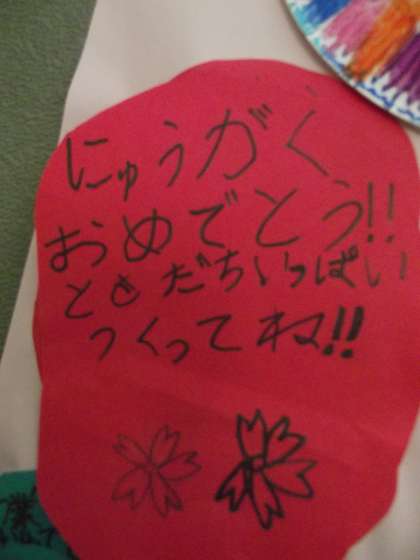 にゅうがく
おめでとう!!
ともだちいっぱい
つくってね!!